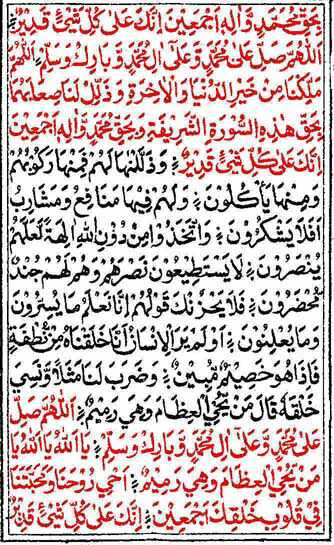 بِحَقِّ مُحَمَّدٍ وَّاٰلِهٖ اَجْمَعِيْنَ اِنَّكَ عَلٰى كُلِّ شَيْئٍ قَدِيْرٌ
اَللّٰهُمَّ صَلِّ عَلٰى مُحَمَّدٍ وَّعَلٰى اٰلِ مُحَمَّدٍ وَّبَارِكْ وَسَلِّمْ اَللّٰهُمَّ
مَلِّكْنَا مِنْ خَيْرِ الدُّنْيَا وَالْاٰخِرَةِ وَذَلِّلْ لَنَا صِعَابَهُمَا
بِحَقِّ هٰذِهِ السُّوْرَةِ الشَّرِيْفَةِ وَبِحَقِّ مُحَمَّدٍ وَّاٰلِهٖ اَجْمَعِيْنَ
اِنَّكَ عَلٰى كُلِّ شَيْئٍ قَدِيْرٌ وَذَلَّلْنٰهَا لَهُمْ فَمِنْهَا رَكُوْبُهُمْ
وَمِنْهَا يَاْكُلُوْنَ وَلَهُمْ فِيْهَا مَنَافِعُ وَمَشَارِبُ
اَفَلَا يَشْكُرُوْنَ وَاتَّخَذُوْا مِنْ دُوْنِ اللّٰهِ اٰلِهَةً لَّعَلَّهُمْ
يُنْصَرُوْنَ لَا يَسْتَطِيْعُوْنَ نَصْرَهُمْ وَهُمْ لَهُمْ جُنْدٌ
مُّحْضَرُوْنَ فَلَا يَحْزُنْكَ قَوْلُهُمْ اِنَّا نَعْلَمُ مَا يُسِرُّوْنَ
وَمَا يُعْلِنُوْنَ اَوَلَمْ يَرَ الْاِنْسَانُ اَنَّا خَلَقْنَاهُ مِنْ نُّطْفَةٍ
فَاِذَا هُوَ خَصِيْمٌ مُّبِيْنٌ وَضَرَبَ لَنَا مَثَلًا وَّنَسِيَ
خَلْقَهٗ قَالَ مَنْ يُّحْيِ الْعِظَامَ وَهِيَ رَمِيْمٌ اَللّٰهُمَّ صَلِّ
عَلٰى مُحَمَّدٍ وَّعَلٰى اٰلِ مُحَمَّدٍ وَّبَارِكْ وَسَلِّمْ يَا اَللّٰهُ يَا اَللّٰهُ يَا
مَنْ يُّحْيِ الْعِظَامَ وَهِيَ رَمِيْمٌ اَحْيِ رُوْحَنَا وَمَحَبَّتَنَا
فِيْ قُلُوْبِ خَلْقِكَ اَجْمَعِيْنَ اِنَّكَ عَلٰى كُلِّ شَيْئٍ قَدِيْرٌ